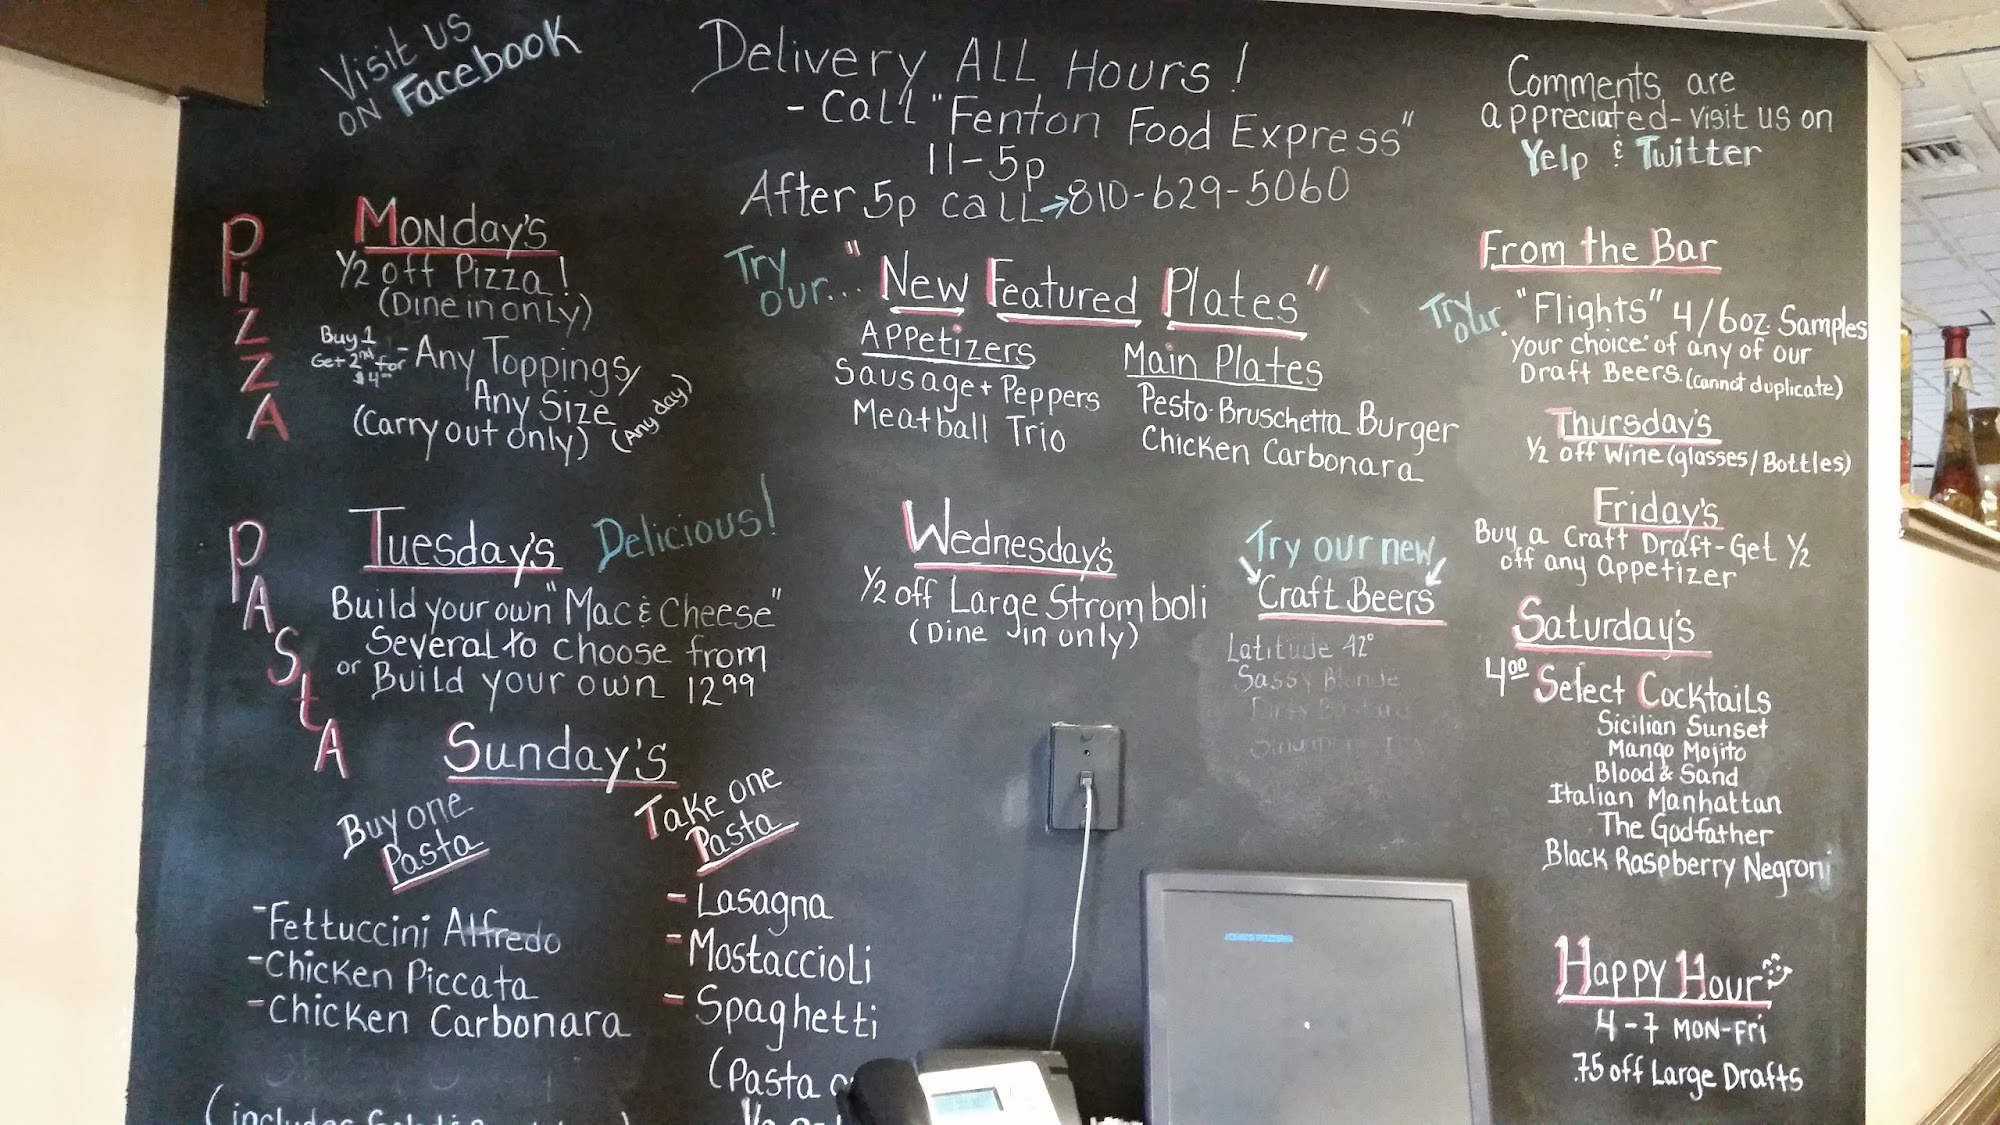 Visit us
on Facebook
Delivery ALL Hours!
- Call "Fenton Food Express"
11-5p
After 5p call → 810-629-5060
Comments are
appreciated - visit us on
Yelp & Twitter
Pizza
Monday's
1/2 off Pizza!
(Dine in only)
Buy 1
Get 2nd for
$4.00
- Any Toppings/
Any Size
(Carry out only) (Any day)
Try
our...
"New Featured Plates"
Appetizers
Sausage + Peppers
Meatball Trio
Main Plates
Pesto-Bruschetta Burger
Chicken Carbonara
From the Bar
Try
our
"Flights" 4/6oz. Samples
your choice of any of our
Draft Beers. (cannot duplicate)
Thursday's
1/2 off Wine (glasses/Bottles)
Friday's
Buy a Craft Draft - Get 1/2
off any appetizer
Saturday's
4.00 Select Cocktails
Sicilian Sunset
Mango Mojito
Blood & Sand
Italian Manhattan
The Godfather
Black Raspberry Negroni
Happy Hour
4-7 Mon-Fri
.75 off Large Drafts
Pasta
Tuesday's
Delicious!
Build your own "Mac & Cheese"
Several to choose from
or Build your own 12.99
Wednesday's
1/2 off Large Stromboli
(Dine in only)
Try our new
Craft Beers
Latitude 42°
Sassy Blonde
Sunday's
Buy one
Pasta
- Fettuccini Alfredo
- Chicken Piccata
- Chicken Carbonara
Take one
Pasta
- Lasagna
- Mostaccioli
- Spaghetti
(Pasta
(includes